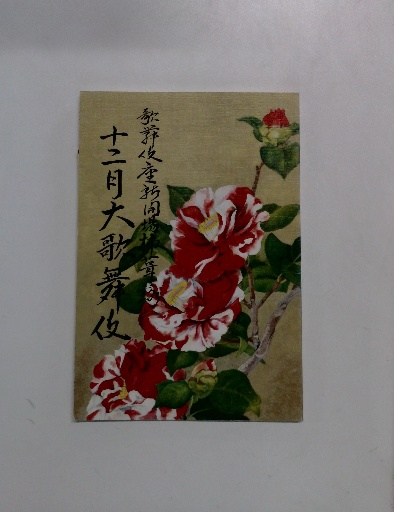 歌舞伎座新開場柿葺落
十二月大歌舞伎